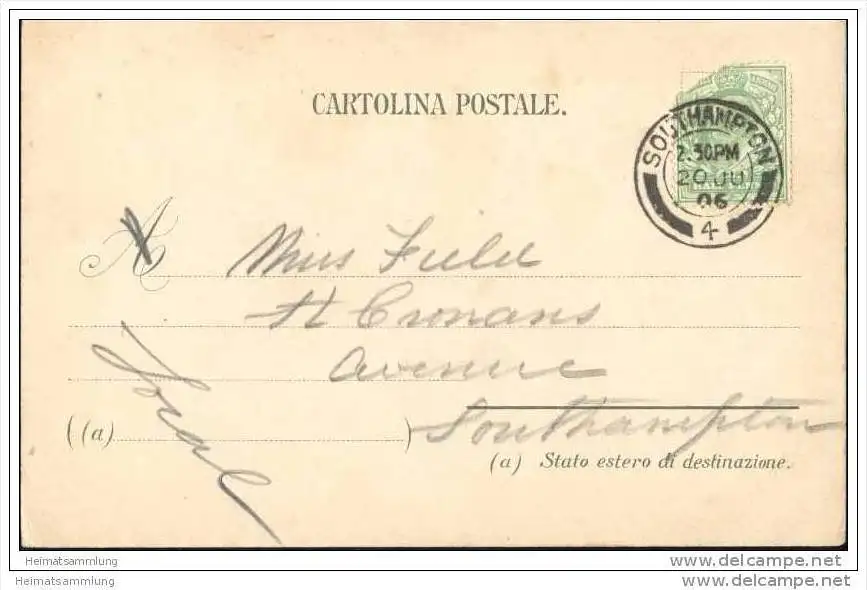 CARTOLINA POSTALE.
SOUTHAMPTON
2.30PM
20 JU
06
4
A
Miss Field
St Cronans
Avenue
Southampton
Local
((a) )
(a) Stato estero di destinazione.
Heimatsammlung
Heimatsammlung
www.delcampe.net